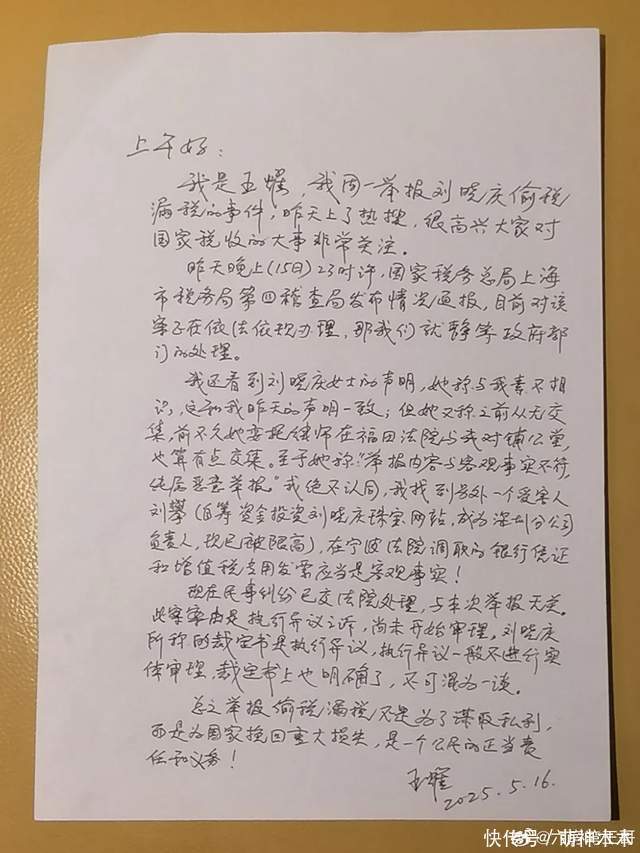 上午好：
我是王耀，我周一举报刘晓庆偷税
漏税的事件，昨天上了热搜，很高兴大家对
国家税收的大事非常关注。
昨天晚上(15日)23时许，国家税务总局上海
市税务局第四稽查局发布情况通报，目前对该
案子在依法依规办理，那我们就静等政府部
门的处理。
我还看到刘晓庆女士的声明，她称与我素不相
识，这和我昨天的声明一致；但她又称之前从无交
集，前不久她委托律师在福田法院与我对铺公堂，
也算有点交集。至于她称："举报内容与客观事实不符，
纯属恶意举报"我绝不认同，我找到另外一个受害人
刘攀(自筹资金投资刘晓庆珠宝网站，成为深圳分公司
负责人，现已被限高)，在宁波法院调取的银行凭证
和增值税专用发票应当是客观事实！
现在民事纠纷已交法院处理，与本次举报无关。
此案案由是执行异议之诉，尚未开始审理。刘晓庆
所称的裁定书是执行异议，执行异议一般不进行实
体审理，裁定书上也明确了，不可混为一谈。
总之举报偷税漏税不是为了谋取私利，
而是为国家挽回重大损失，是一个公民的正当责
任和义务！
王耀
2025.5.16.
快传号/萌神木木